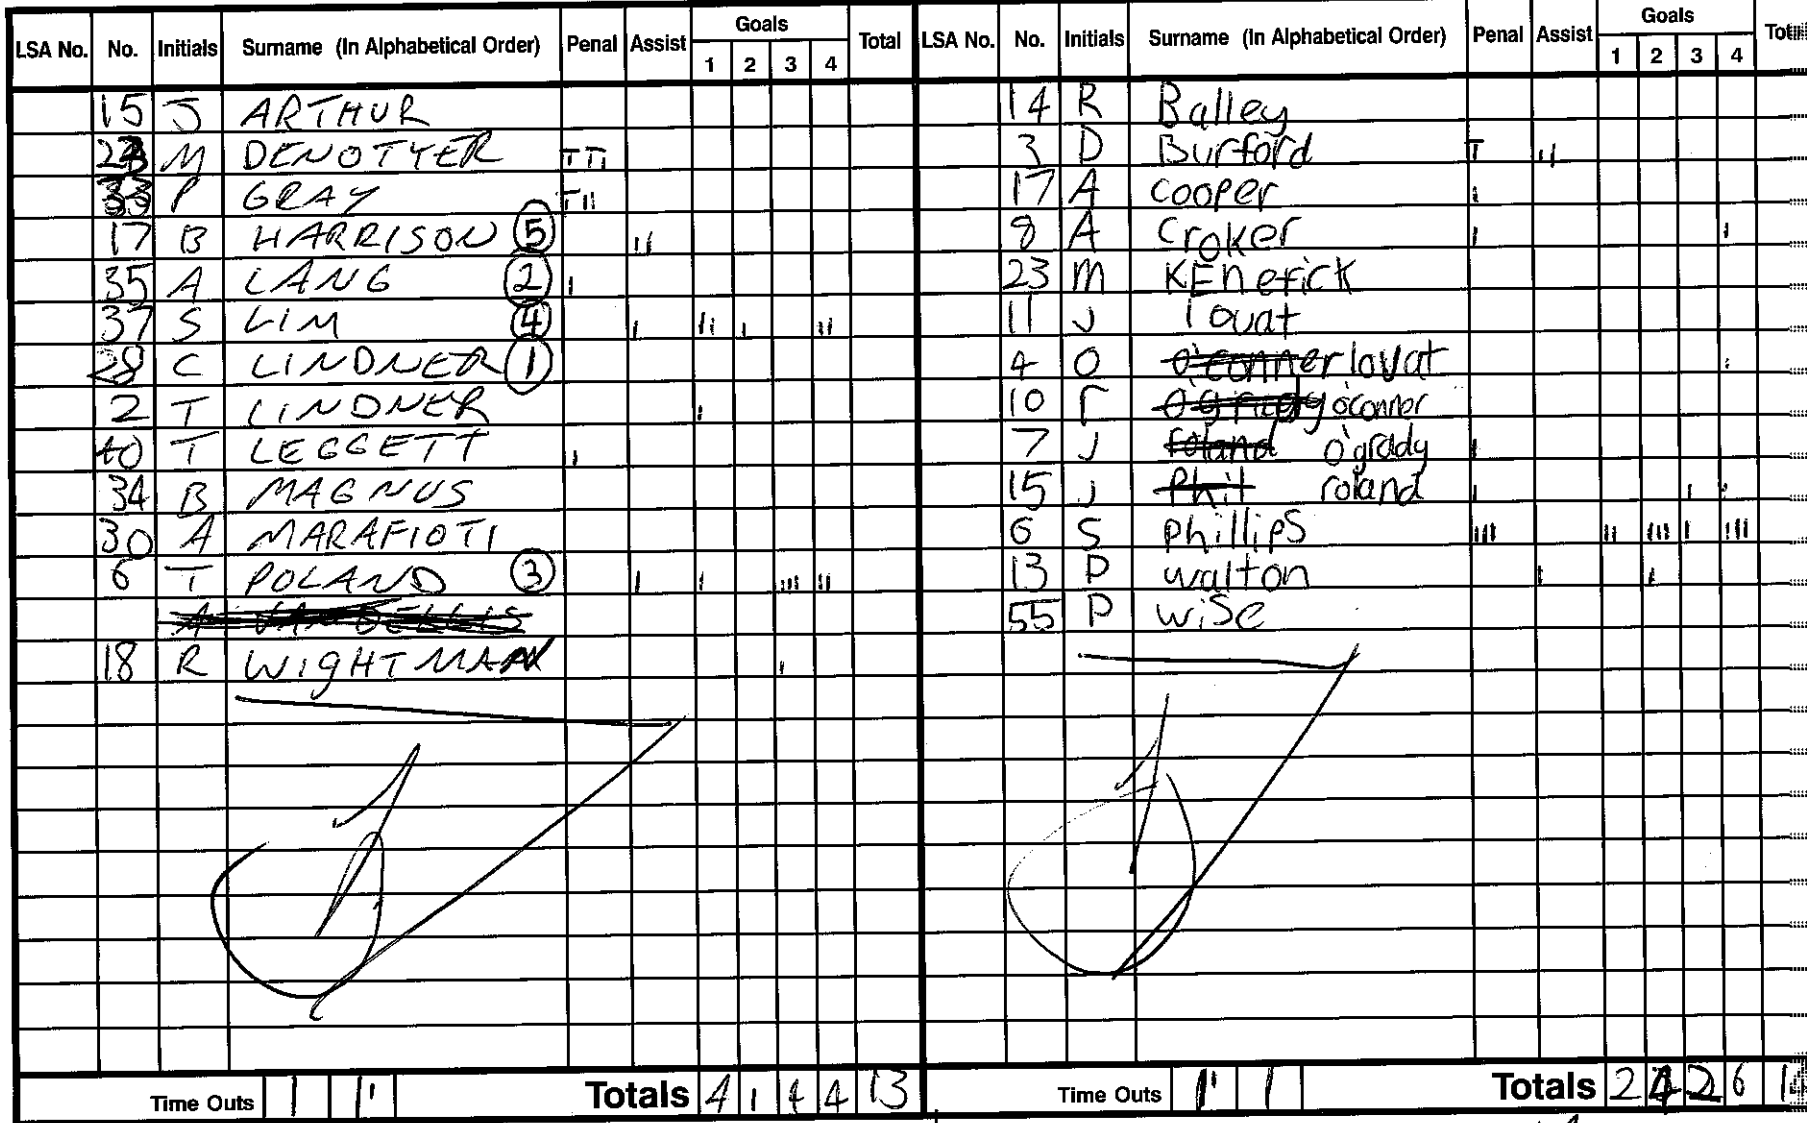 LSA No. No. Initials Surname (In Alphabetical Order) Penal Assist Goals 1 2 3 4 Total
15 J ARTHUR
M DENOTYER
33 P GRAY
17 B HARRISON 5
35 A LANG 2
37 S LIM 4
28 C LINDNER 1
2 T LINDNER
40 T LEGGETT
34 B MAGNUS
30 A MARAFIOTI
6 T POLAND 3
18 R WIGHTMAN
Time Outs Totals 4 1 4 4 13
LSA No. No. Initials Surname (In Alphabetical Order) Penal Assist Goals 1 2 3 4
14 R Balley
3 D Burford
17 A cooper
8 A Croker
23 M KEnerick
11 J lovat
4 O lovat
10 r o'connor
7 J o'grady
15 J roland
6 S phillips
13 P walton
55 P wise
Time Outs Totals 2 4 2 6 14